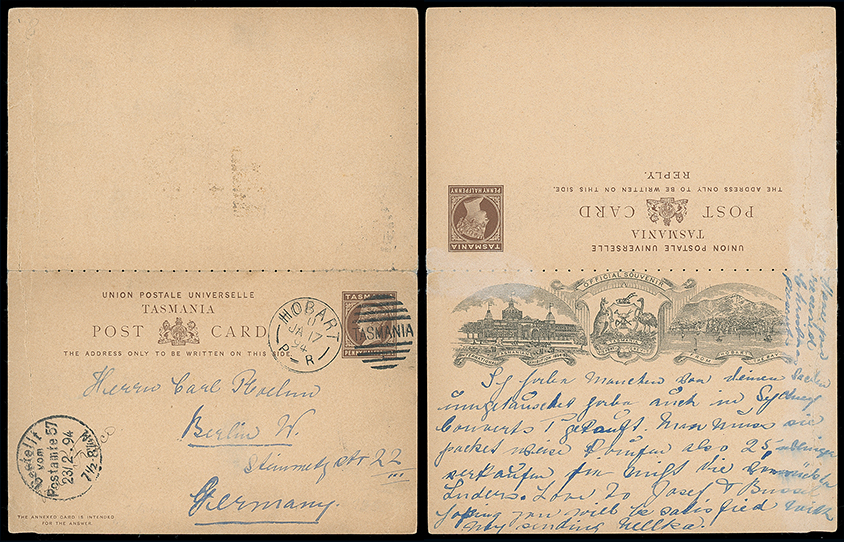 UNION POSTALE UNIVERSELLE
TASMANIA
POST CARD
THE ADDRESS ONLY TO BE WRITTEN ON THIS SIDE.
TASMANIA
PENNY
HOBART
JA 17
94
P R
TASMANIA
Herrn Carl
Berlin W.
Steinmetz str 22 III
Germany.
Bestellt
vom
Postamte 57
23/2 94
7½-8¾N
THE ANNEXED CARD IS INTENDED
FOR THE ANSWER.
UNION POSTALE UNIVERSELLE
TASMANIA
POST CARD
THE ADDRESS ONLY TO BE WRITTEN ON THIS SIDE.
REPLY.
TASMANIA
PENNY HALFPENNY
OFFICIAL SOUVENIR
Ich haben manchen von deinen
umgetauscht haben auch in Sydney
Couverts gekauft. Man muss sie
packet weise kaufen also 25
verkaufen für mich die
Luders. Love to Josef &
hoping you will be satisfied with
my sending Nellka.